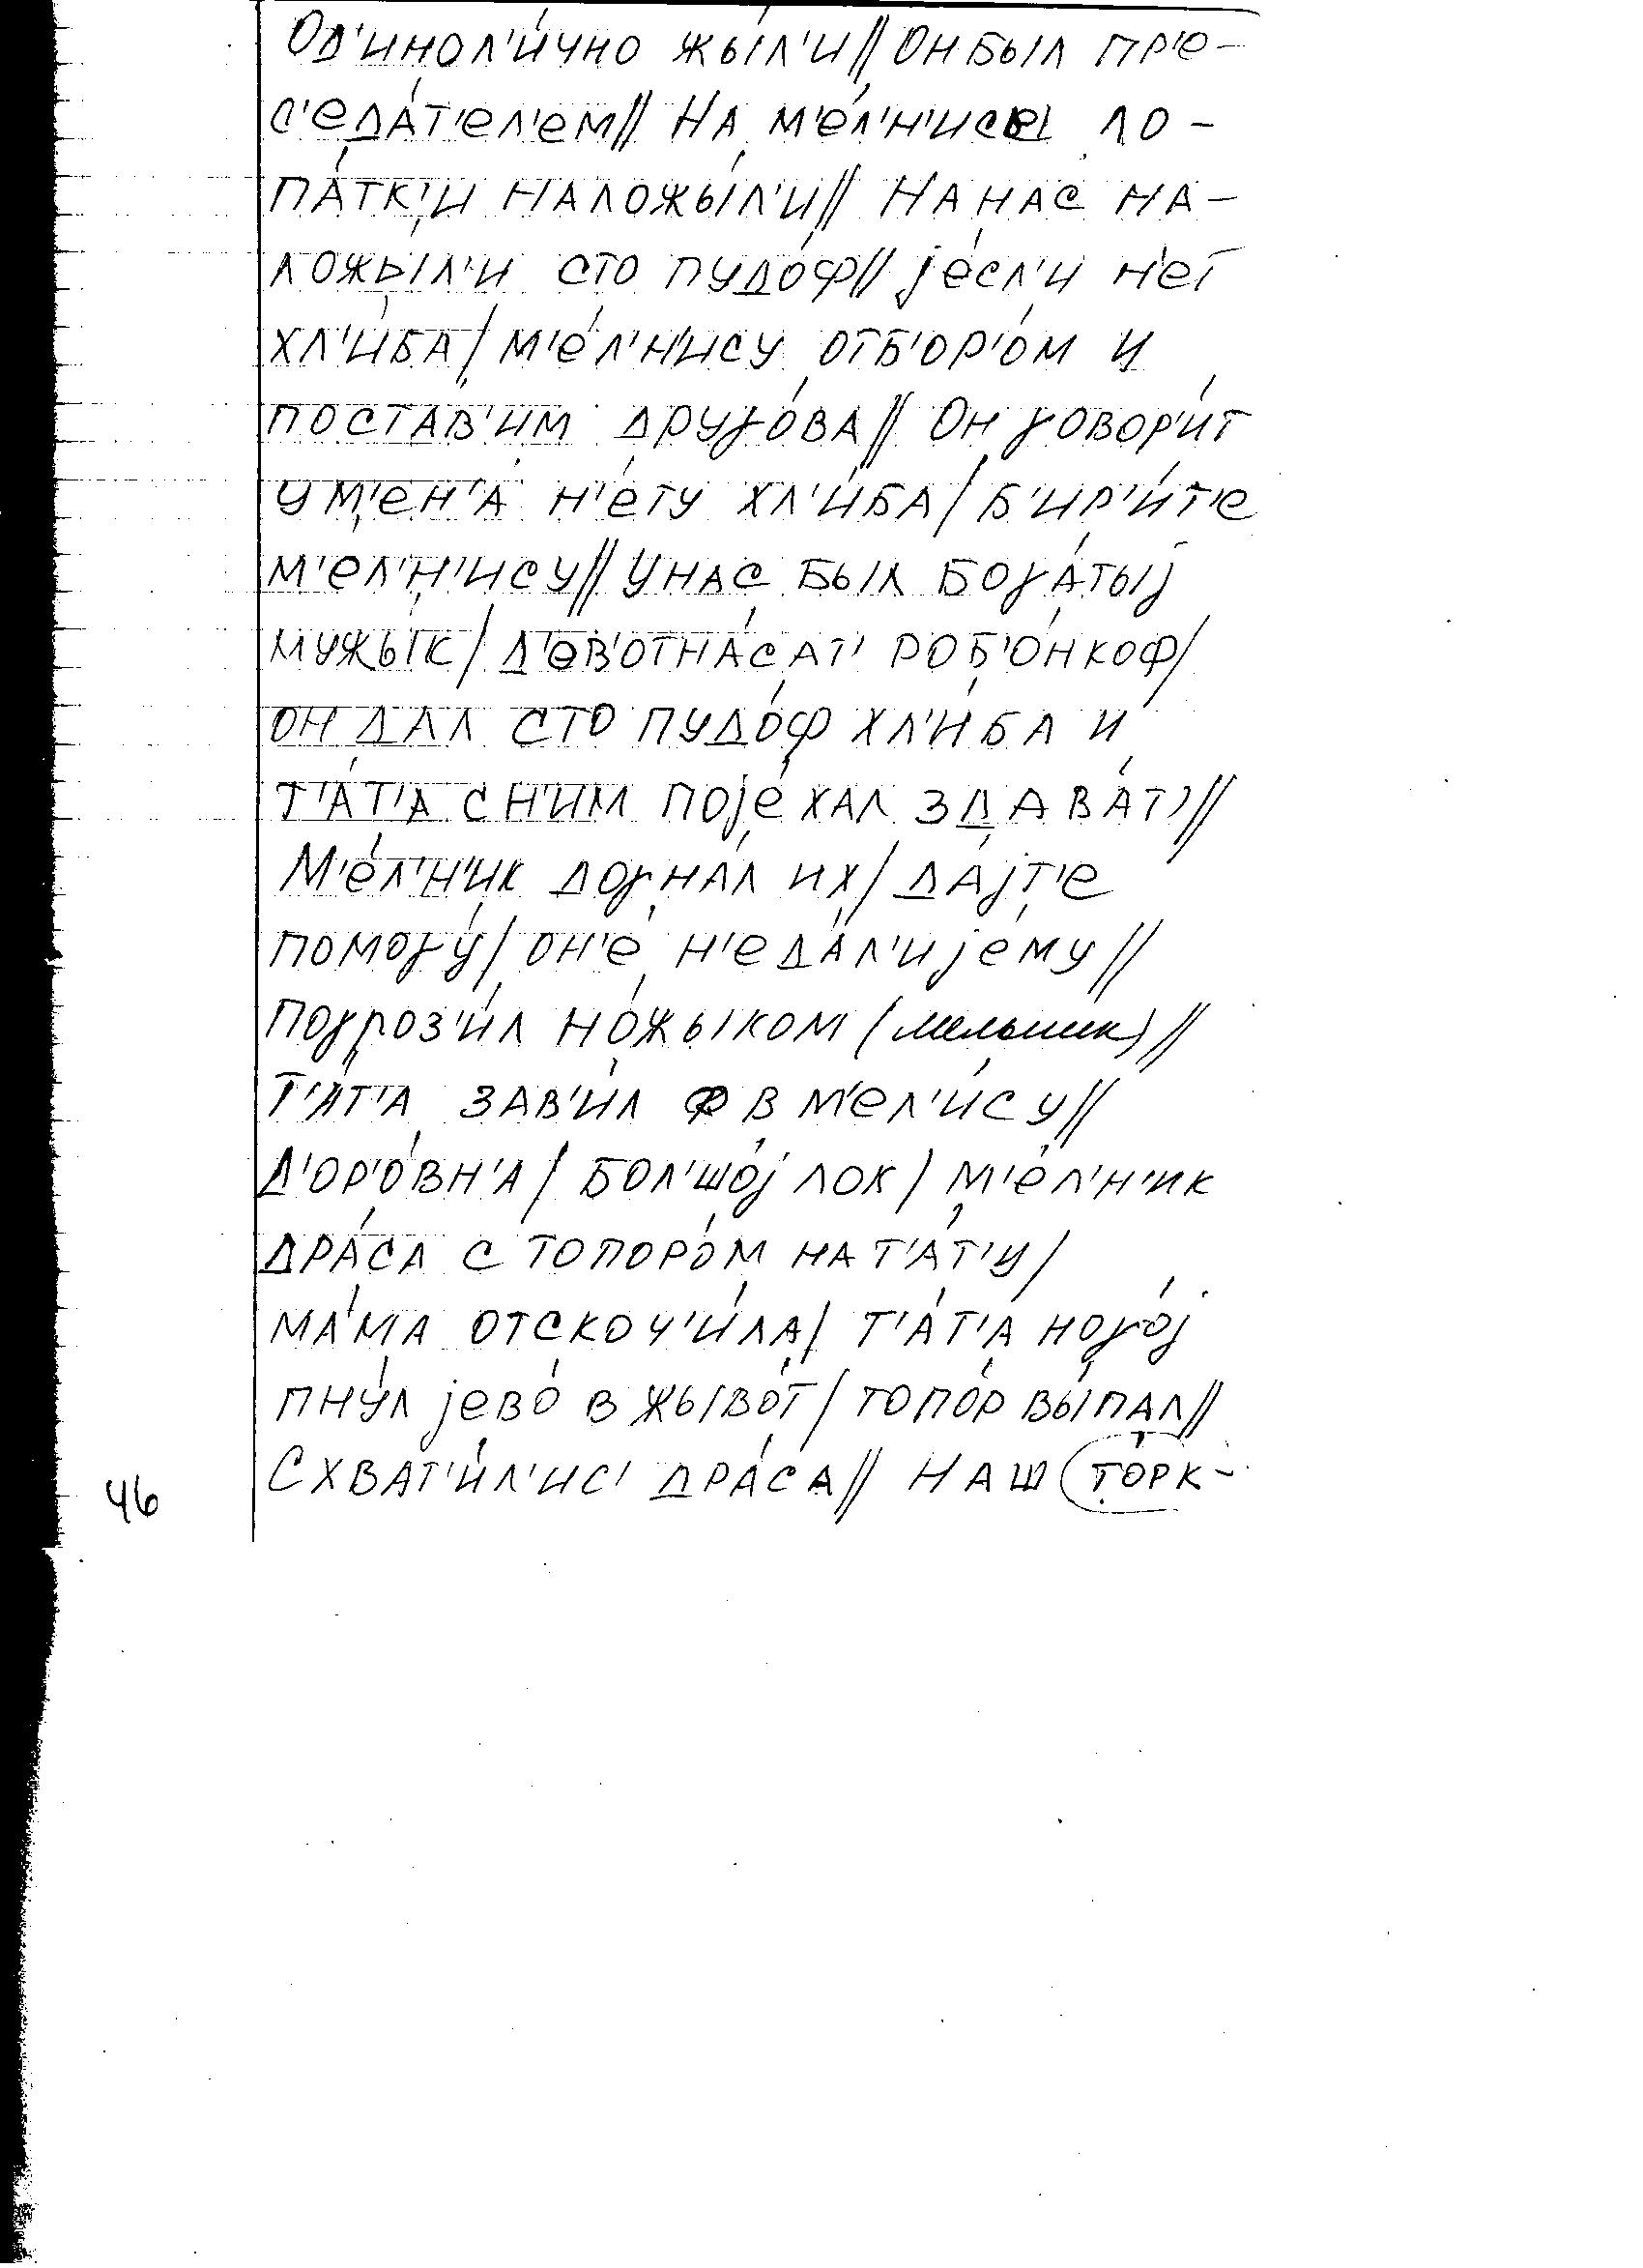 Од'инол'и́чно жы́л'и // Он был пр'е-
с'еда́т'ел'ем // На м'е́л'н'исы ло-
па́тк'и наложы́л'и // На нас на-
ложы́л'и сто пудо́ф // jе́сл'и н'ет
хл'и́ба / м'е́л'н'ису отб'ор'о́м и
поста́в'им друγо́ва // Он γовор'и́т
у м'ен'а́ н'е́ту хл'и́ба / б'ир'и́т'е
м'е́л'н'ису // У нас был боγа́тыj
мужы́к / д'ев'отна́сат' роб'о́нкоф /
он дал сто пудо́ф хл'и́ба и
т'а́т'а с н'им поjе́хал здава́т' //
М'е́л'н'ик доγна́л их / да́jт'е
помоγу́ / он'е́ н'е да́л'и jему́ //
Поγроз'и́л но́жыком (мельник) //
Т'а́т'а зав'и́л в м'ел'и́су //
Д'ор'о́вн'а / бол'шо́j лох / м'е́л'н'ик
дра́са с топоро́м на т'а́т'у /
ма́ма отскоч'и́ла / т'а́т'а ноγо́j
пну́л jево́ в жыво́т / топо́р вы́пал //
Схват'и́л'ис' дра́са // Наш то́рк-
46